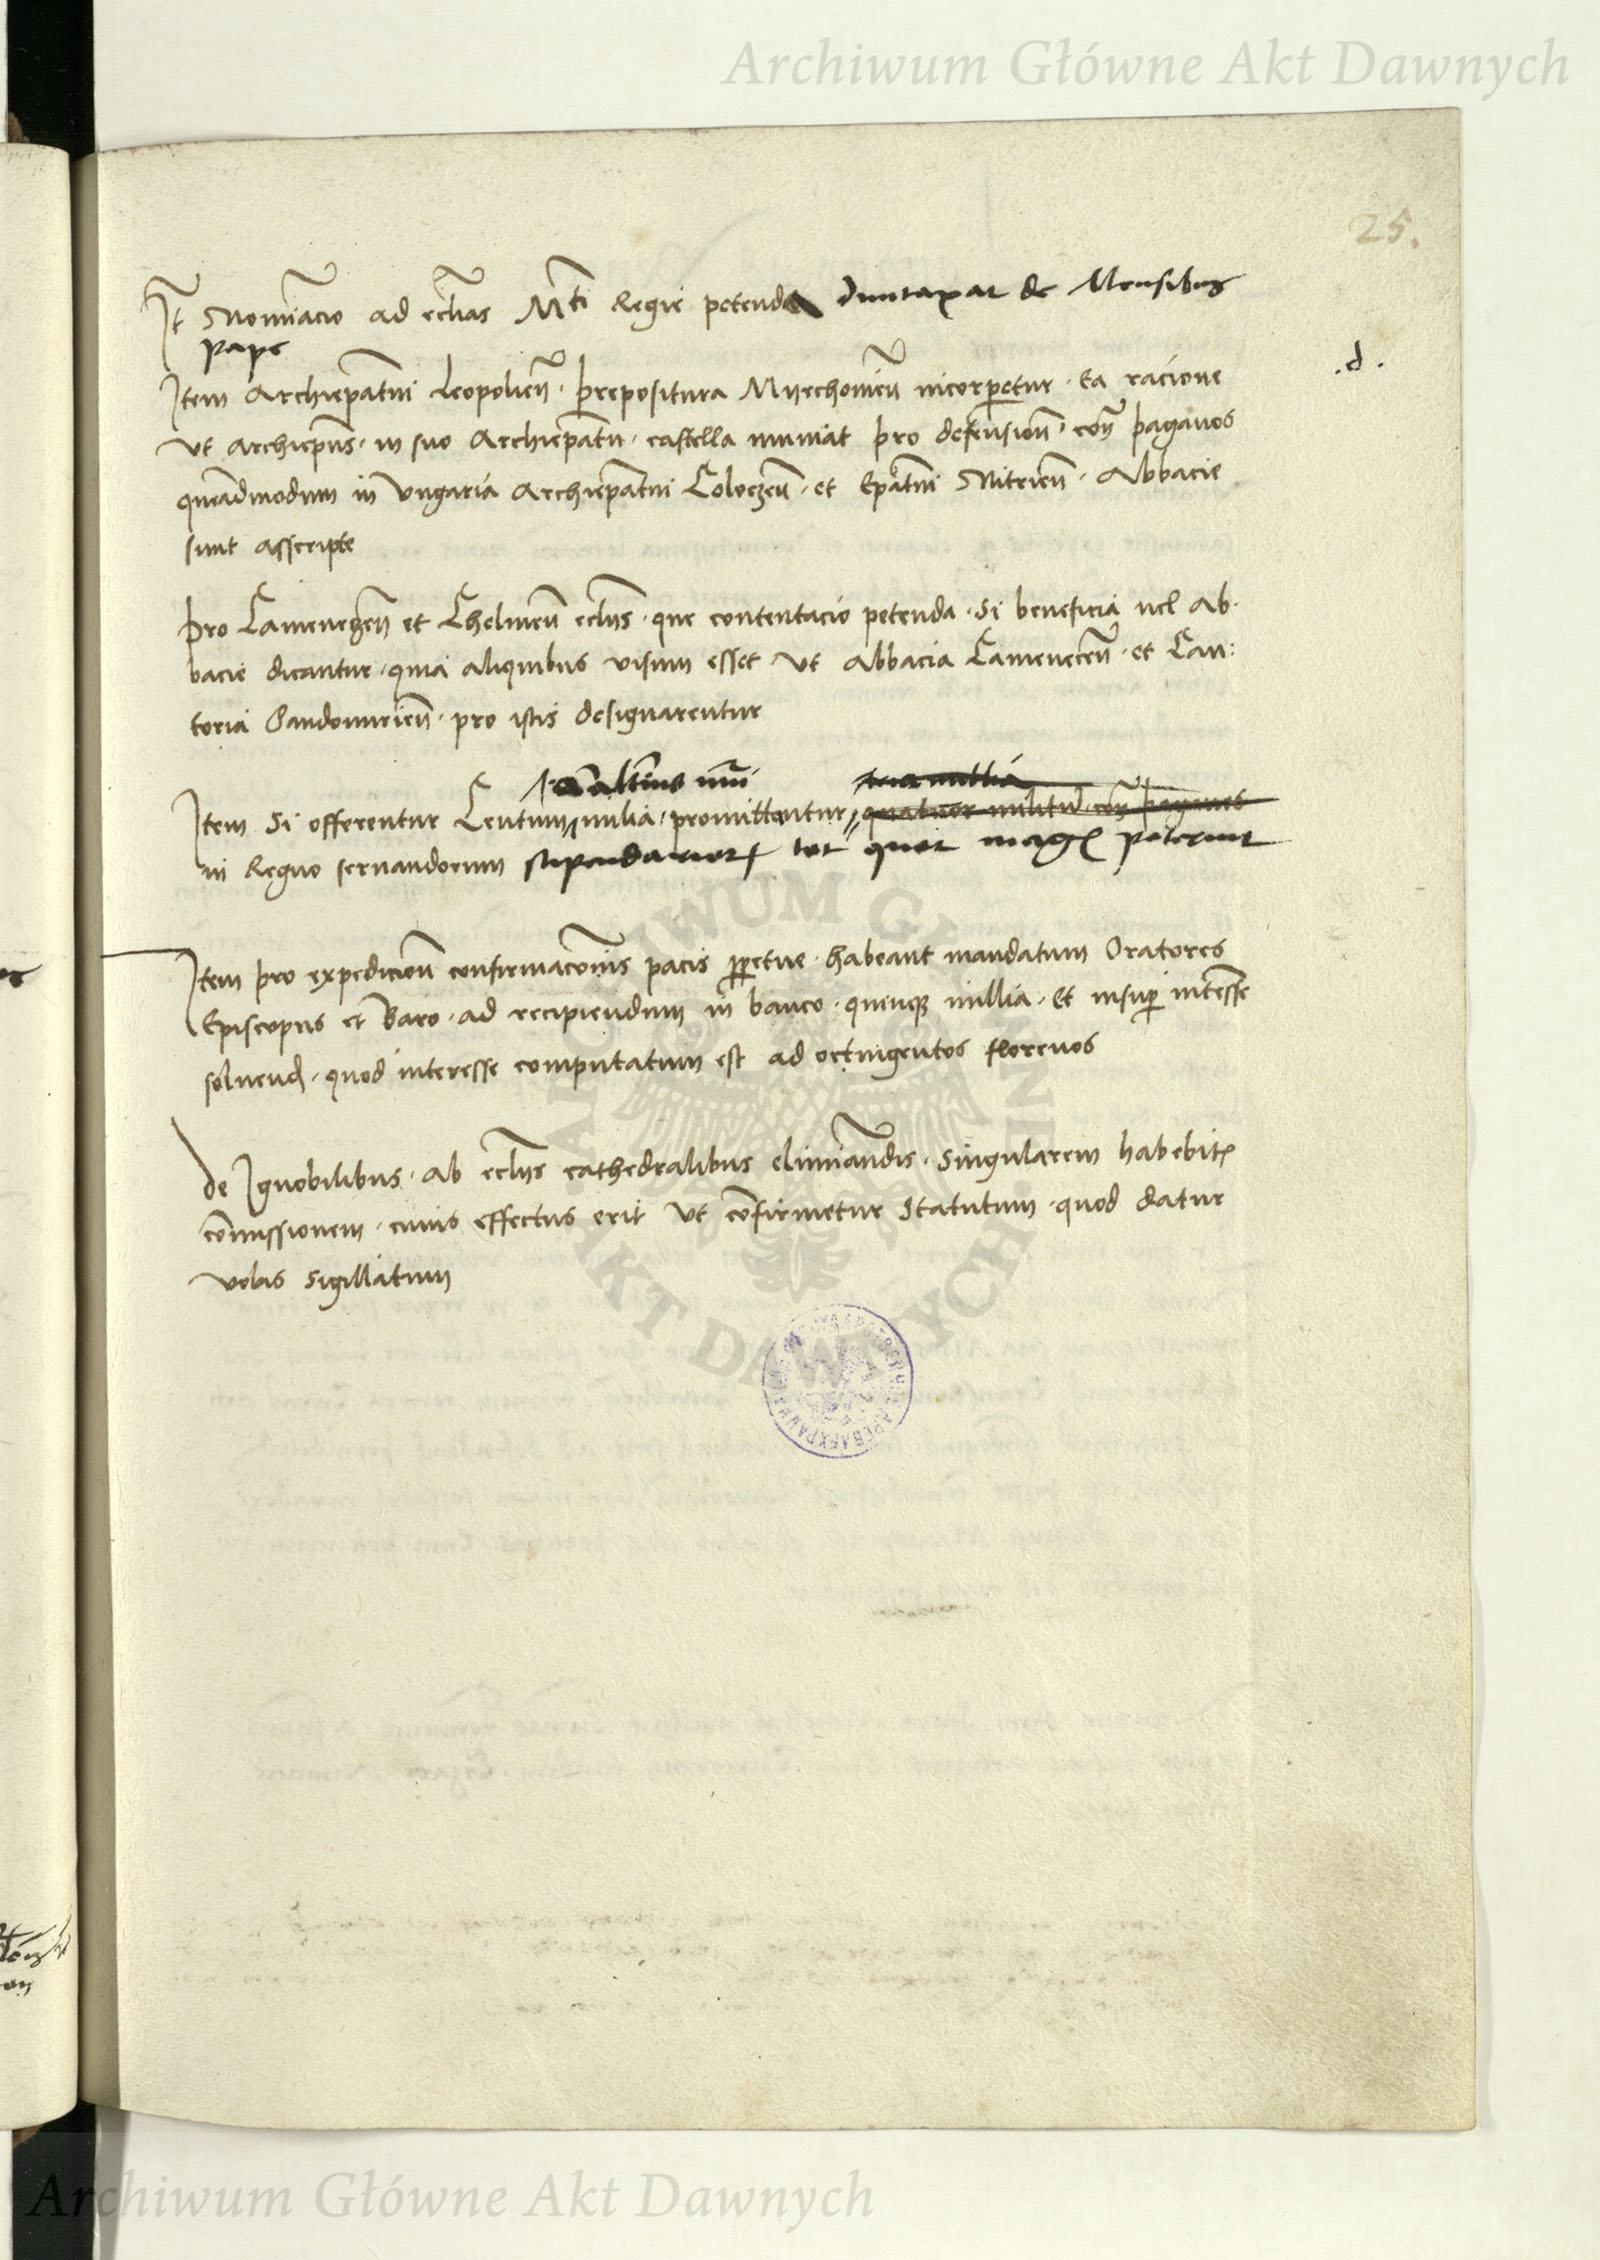 Archiwum Główne Akt Dawnych
25.
It Nominacio ad eccłias Mti Regie petenda duntaxat de Mensibus
pape
.d.
Item Archiepatui Leopolien̄ · prepositura Myechouien̄ incorporetur · Ea racione
Vt Archiepūs · in suo Archiepatu · castella muniat pro defension̄ · con̄ paganos
queadmodum in Vngaria Archiepatui Coloczen̄ · et Epatui Nitrien̄ · Abbacie
sunt asscripte
Pro Camenezen̄ et Chelmen̄ ecclijs · que contentacio petenda · Si beneficia vel Ab·
bacie dicantur · quia aliquibus visum esset Vt Abbacia Camenecen̄ · et Can:
toria Sandomirien̄ · pro istis designarentur
tria millia
Item Si offerentur Centum milia · promittantur quatuor militu͂ · con̄ paganos
in Regno seruandorum stipendarior tot quot mag poterunt
Item pro expedicion̄ confirmacōnis pacis ppetue · habeant mandatum Oratores
Episcopus et Baro · ad recipiendum in banco · quinqz millia · Et insup interesse
soluend · quod interesse computatum est ad octingentos florenos
De Ignobilibus · Ab ecclijs cathedralibus eliminandis · Singularem habebit
cōmissionem · cuius effectus erit Vt cōfirmetur Statutum · quod datur
vobis Sigillatum
ARCHIWUM GŁÓWNE AKT DAWNYCH
Archiwum Główne Akt Dawnych